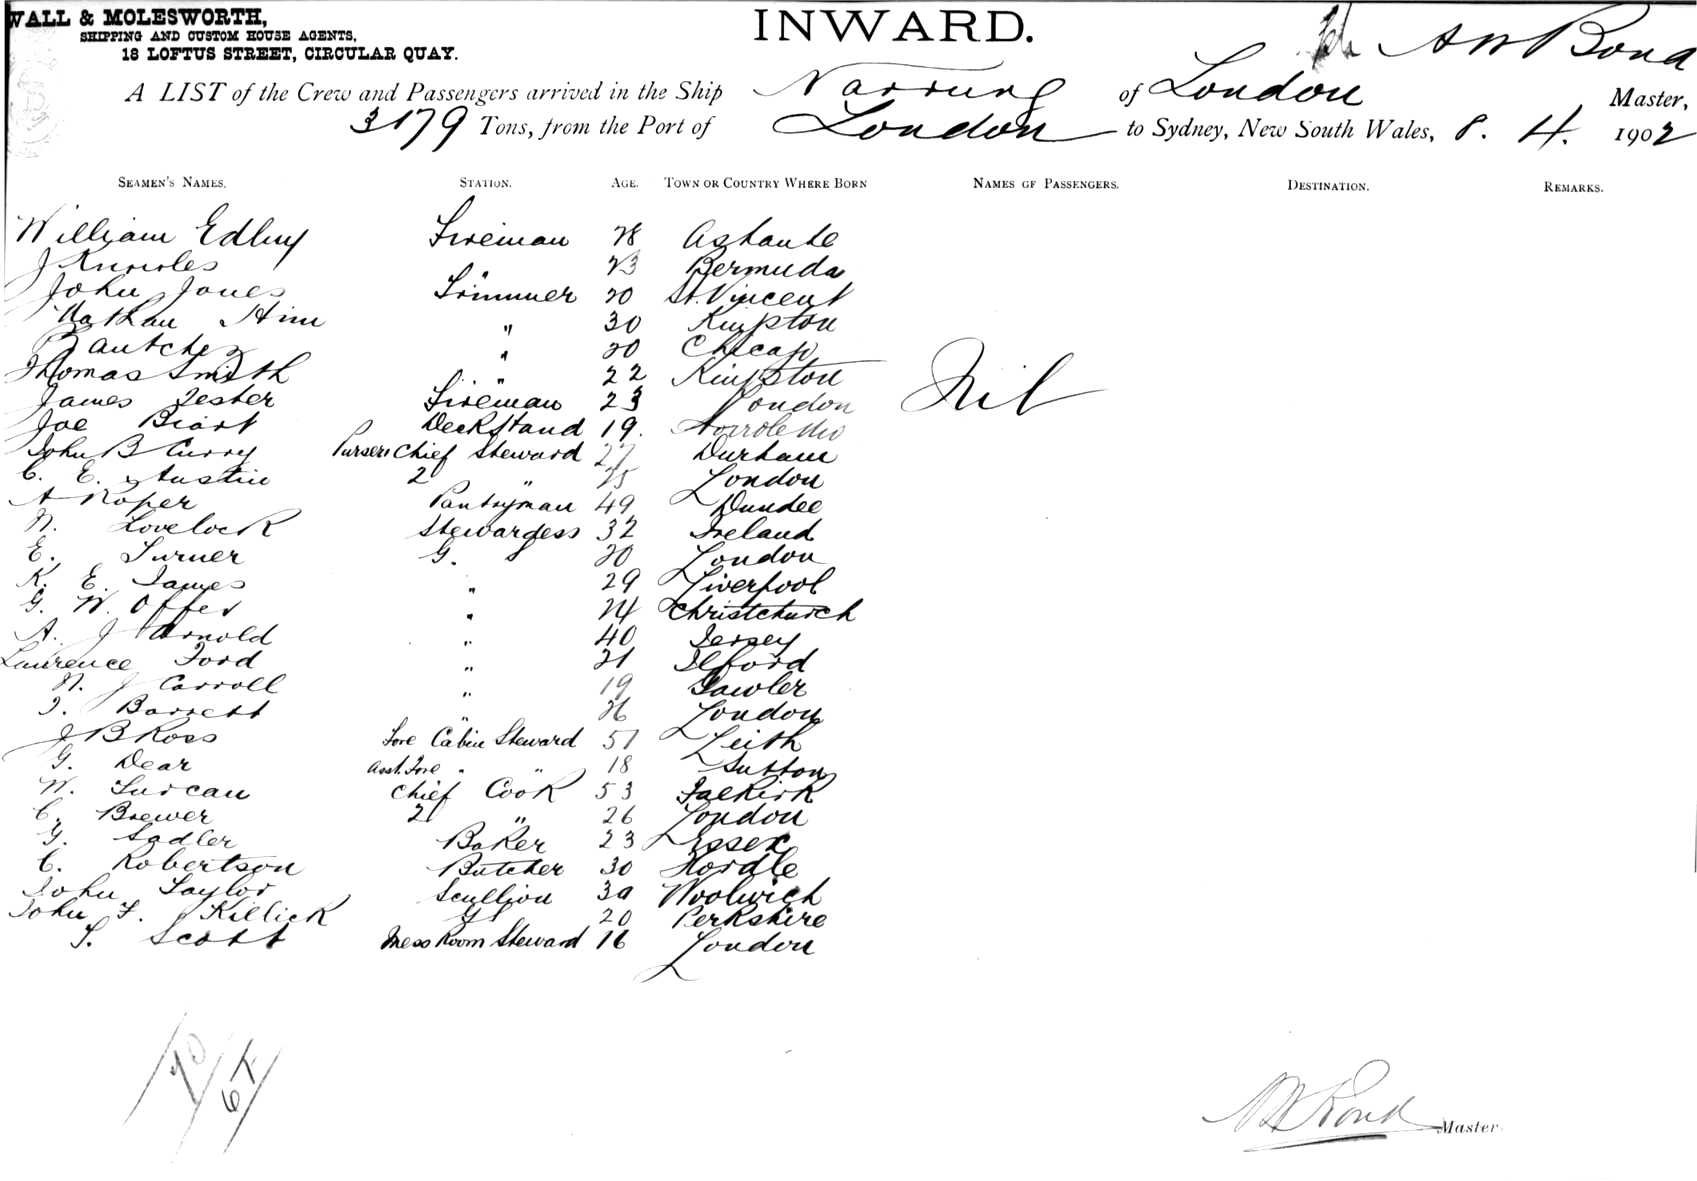 WALL & MOLESWORTH,
SHIPPING AND CUSTOM HOUSE AGENTS,
18 LOFTUS STREET, CIRCULAR QUAY.
INWARD.
A W Bond
A LIST of the Crew and Passengers arrived in the Ship Narrung of London Master,
3179 Tons, from the Port of London to Sydney, New South Wales, 8. 4. 1902
SEAMEN'S NAMES. STATION. AGE. TOWN OR COUNTRY WHERE BORN NAMES OF PASSENGERS. DESTINATION. REMARKS.
William Fireman 28
J Knowles " 23 Bermuda
John Jones Trimmer 20 St. Vincent
Nathan Him " 30 Kingston
" 20 Chicago
Thomas Smith " 22 Kingston
Nil
James Tester Fireman 23 London
Joe Biart Deckhand 19.
John B Curry Purser & Chief Steward 27 Durham
C. E. Austin 2 " 25 London
A Roper Pantryman 49 Dundee
N. Lovelock Stewardess 32 Ireland
E. Turner G. S 20 London
K. E. James " 29 Liverpool
G. W. Offer " 24 Christchurch
A. J Arnold " 40 Jersey
Laurence Ford " 21 Ilford
N. J Carroll " 19 Gawler
T. Barrett " 26 London
J B Ross Fore Cabin Steward 51 Leith
G. Dear Asst. Fore " " 18 Sutton
W. Turcan Chief Cook 53 Falkirk
C. Brewer 2 " 26 London
G. Sadler Baker 23 Essex
C. Robertson Butcher 30 Hordle
John Taylor Scullion 39 Woolwich
John F. Killick 20 Berkshire
S. Scott Mess Room Steward 16 London
A W Bond Master